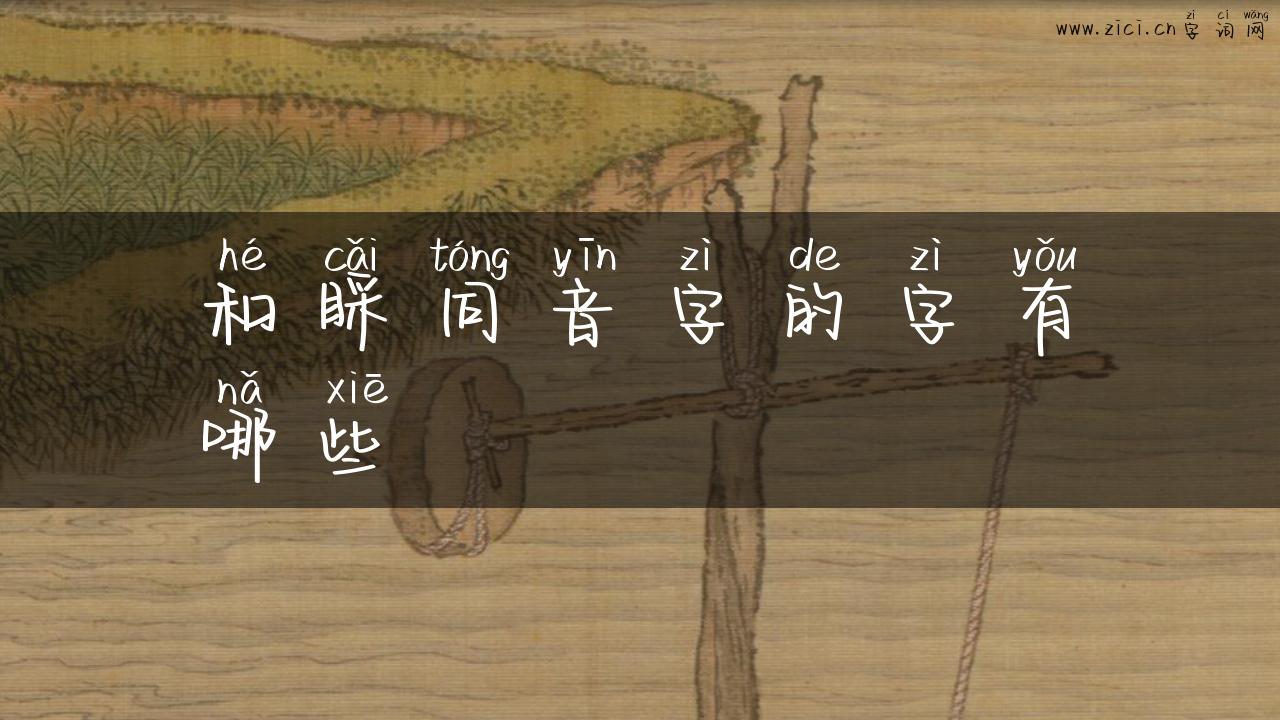 zì cí wǎng
www.zici.cn 字 词 网
hé cǎi tóng yīn zì de zì yǒu
和 睬 同 音 字 的 字 有
nǎ xiē
哪 些